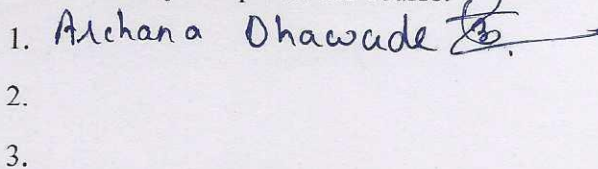 1. Archana Dhawade
2.
3.